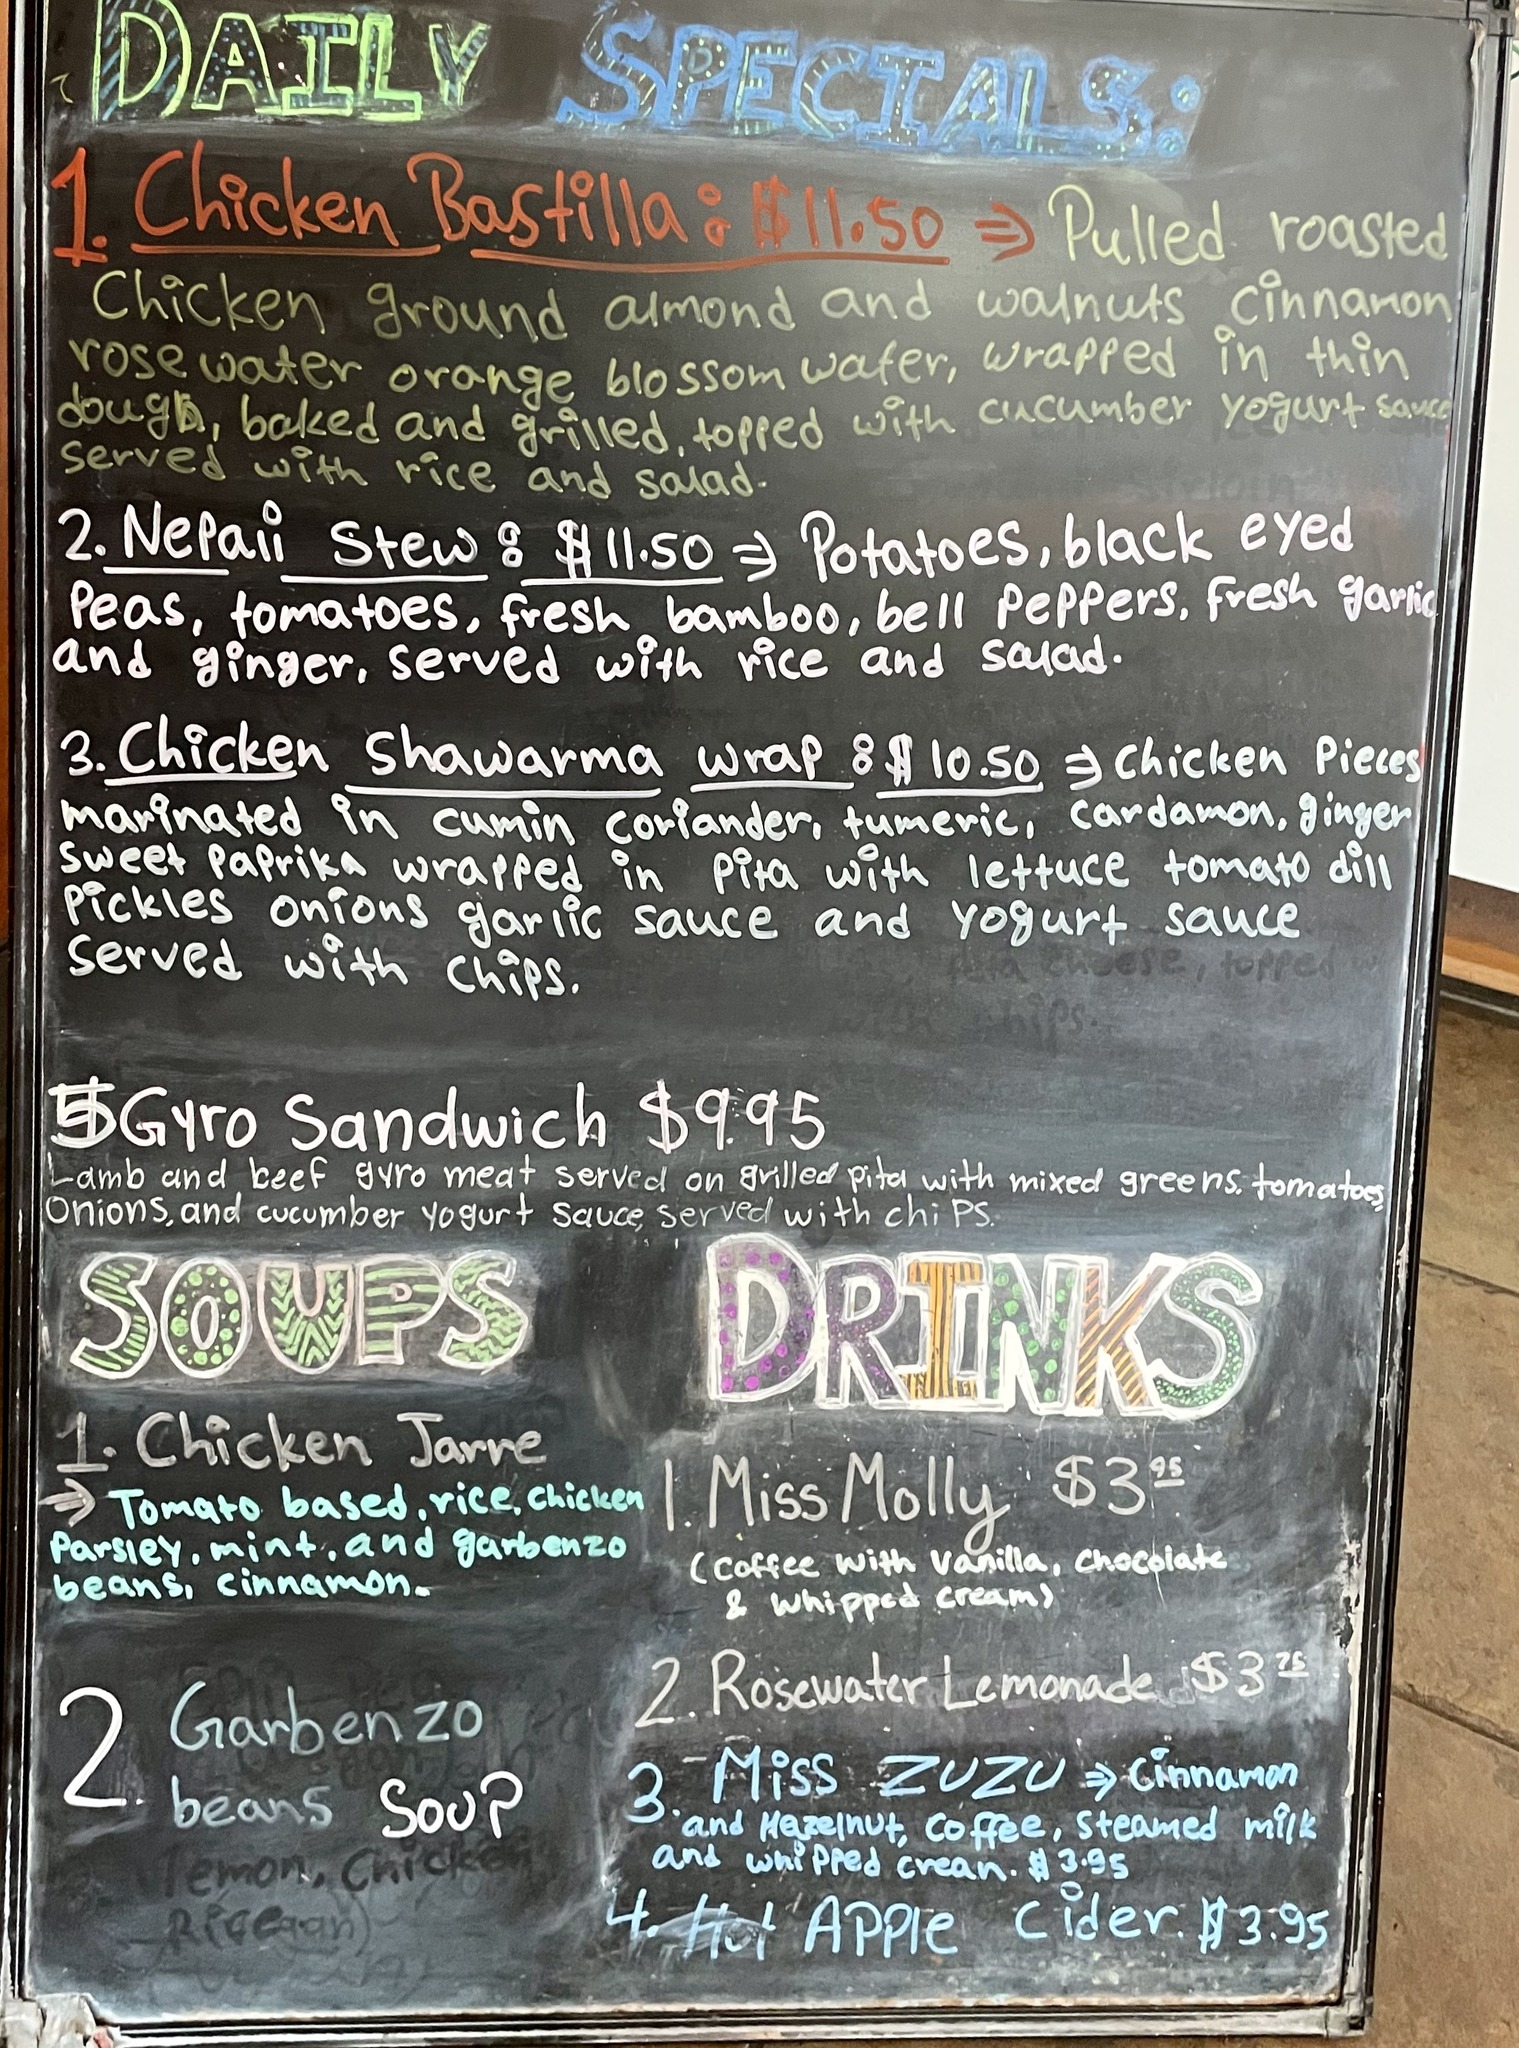 DAILY SPECIALS:
1. Chicken Bastilla: $11.50 ⇒ Pulled roasted
Chicken ground almond and walnuts cinnamon
rose water orange blossom water, wrapped in thin
dough, baked and grilled, topped with cucumber yogurt sauce
served with rice and salad.
2. Nepali Stew: $11.50 ⇒ Potatoes, black eyed
Peas, tomatoes, fresh bamboo, bell peppers, fresh garlic
and ginger, served with rice and salad.
3. Chicken Shawarma wrap: $10.50 ⇒ Chicken Pieces
marinated in cumin coriander, tumeric, cardamon, ginger
sweet paprika wrapped in pita with lettuce tomato dill
Pickles onions garlic sauce and yogurt sauce
served with chips.
cheese, topped w
chips.
5 Gyro Sandwich $9.95
Lamb and beef gyro meat served on grilled pita with mixed greens. tomatoes,
Onions, and cucumber yogurt sauce, served with chips.
SOUPS
1. Chicken Jarre
→ Tomato based, rice, chicken
Parsley, mint, and garbenzo
beans, cinnamon.
2. Garbenzo
beans Soup
lemon, Chicken
DRINKS
1. Miss Molly $3.95
(coffee with vanilla, chocolate
& whipped cream)
2. Rosewater Lemonade $3.75
3. Miss ZUZU ⇒ Cinnamon
and Hazelnut, coffee, steamed milk
and whipped crean. $3.95
4. Hot APPle Cider. $3.95